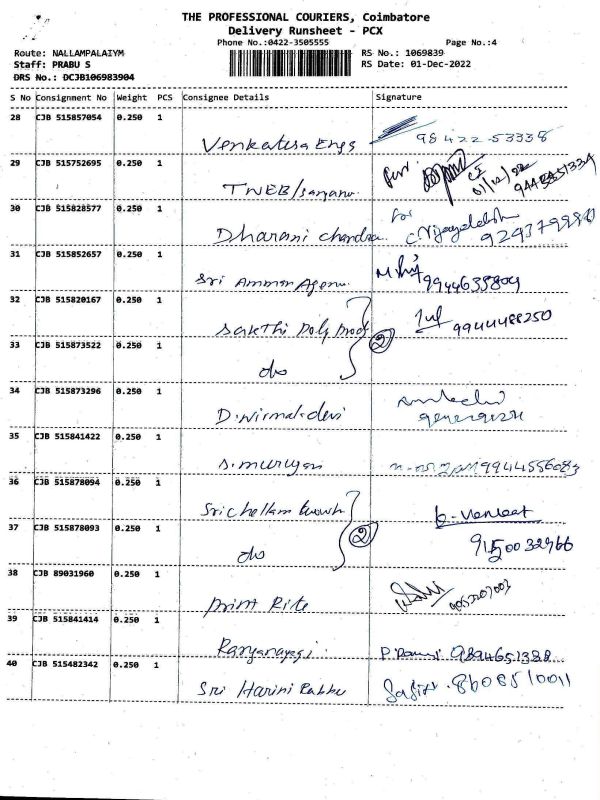 THE PROFESSIONAL COURIERS, Coimbatore
Delivery Runsheet - PCX
Phone No.:0422-3505555 Page No.:4
Route: NALLAMPALAIYM RS No.: 1069839
Staff: PRABU S RS Date: 01-Dec-2022
DRS No.: DCJB106983904
S No Consignment No Weight PCS Consignee Details Signature
28 CJB 515857054 0.250 1
Venkatesa Engs 98422-53338
29 CJB 515752695 0.250 1
TNEB/
30 CJB 515828577 0.250 1
Dharani chandra for
31 CJB 515852657 0.250 1
Sri Amman Agen 9944635804
32 CJB 515820167 0.250 1
Sakthi Poly Prod 9944488250
33 CJB 515873522 0.250 1 2
do
34 CJB 515873296 0.250 1
D. Nirmala devi
35 CJB 515841422 0.250 1
S. murugan 9944556083
36 CJB 515878094 0.250 1
Sri chellam
37 CJB 515878093 0.250 1 2
do 9150032966
38 CJB 89031960 0.250 1
Print Rite
39 CJB 515841414 0.250 1
Ranganayagi 9894651388
40 CJB 515482342 0.250 1
Sri Harini 8608510011